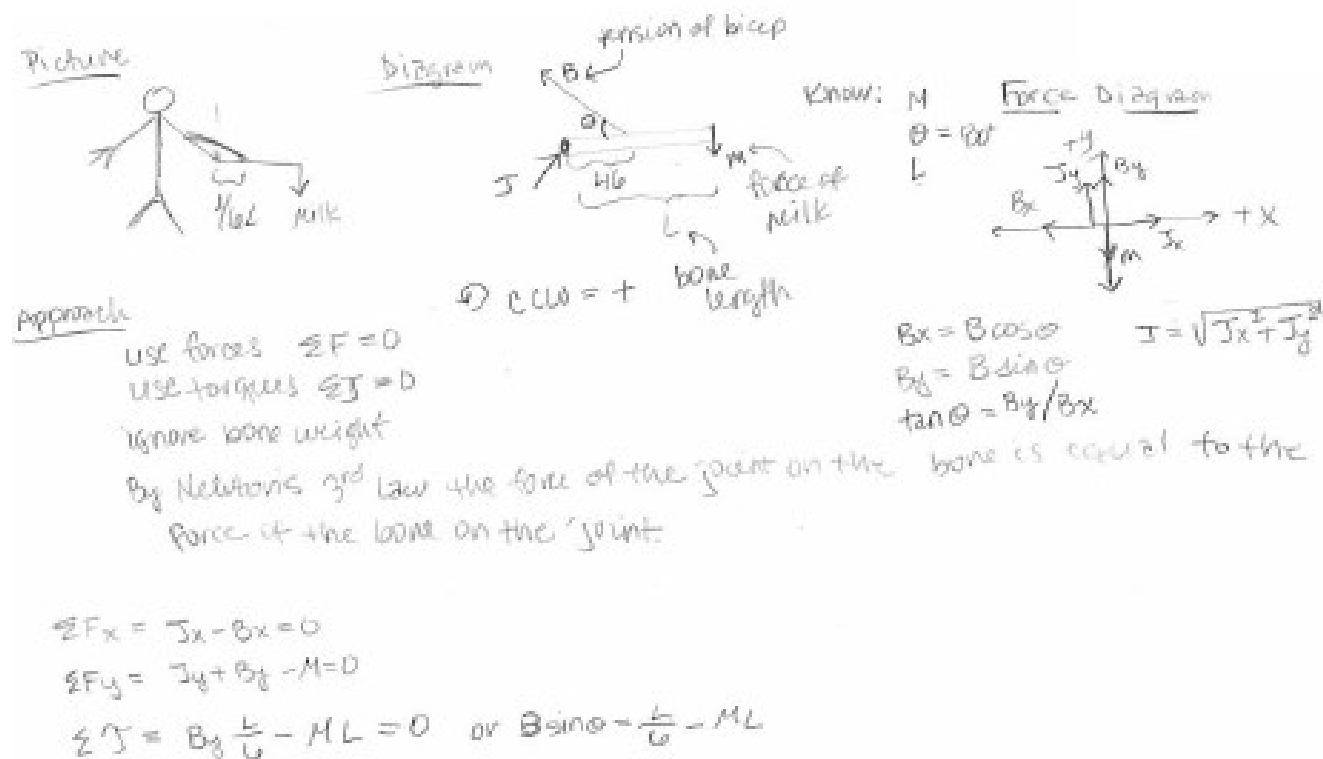 Picture
1/6L
Milk
Diagram
tension of bicep
B
θ
J
L/6
M
force of milk
L
bone length
CCW = +
Know: M
θ = 80°
L
Force Diagram
+y
Jy
By
Bx
+x
Jx
M
Bx = B cosθ
By = B sinθ
tanθ = By/Bx
J = √Jx² + Jy²
Approach
use forces ΣF = 0
use torques Στ = 0
ignore bone weight
By Newton's 3rd Law the force of the joint on the bone is equal to the
force of the bone on the joint.
ΣFx = Jx - Bx = 0
ΣFy = Jy + By - M = 0
Στ = By L/6 - ML = 0 or B sinθ - L/6 - ML